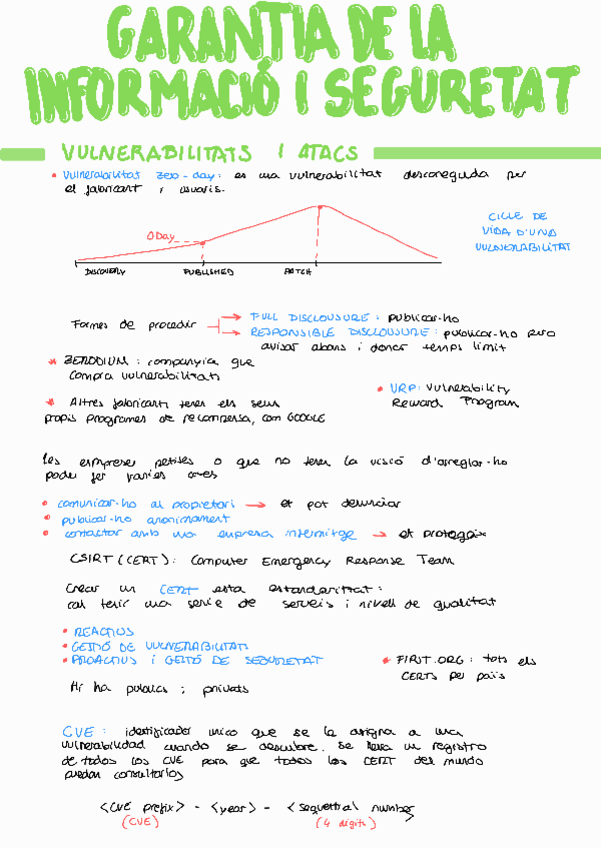 GARANTIA DE LA
INFORMACIÓ I SEGURETAT
VULNERABILITATS I ATACS
• Vulnerabilitat zero-day: es una vulnerabilitat desconeguda per
el fabricant i usuaris.
0Day
DISCOVERY PUBLISHED PATCH
CICLE DE
VIDA D'UNA
VULNERABILITAT
Formes de procedir
→ FULL DISCLOUSURE: publicar-ho
→ RESPONSIBLE DISCLOUSURE: publicar-ho pero
avisar abans i donar temps limit
* ZERODIUM: companyia que
compra vulnerabilitats
• VRP: Vulnerability
Reward Program
* Altres fabricants tenen els seus
propis programes de recompensa, com GOOGLE
Les empreses petites o que no tenen la visió d'arreglar-ho
poden fer varies coses
• comunicar-ho al propietari → et pot denunciar
• publicar-ho anonimament
• contactar amb una empresa intermitge → et protegeix
CSIRT (CERT): Computer Emergency Response Team
Crear un CERT esta estandaritzat:
cal tenir una serie de serveis i nivell de qualitat
• REACTIUS
• GESTIÓ DE VULNERABILITATS
• PROACTIUS i GESTIÓ DE SEGURETAT
* FIRST.ORG: tots els
CERTS per país
Hi ha publics i privats
CVE: identificador unico que se le asigna a una
vulnerabilidad cuando se descubre. Se lleva un registro
de todos los CVE para que todos los CERT del mundo
puedan consultarlos
<CVE prefix> - <year> - <sequettial number
(CVE) (4 digits)